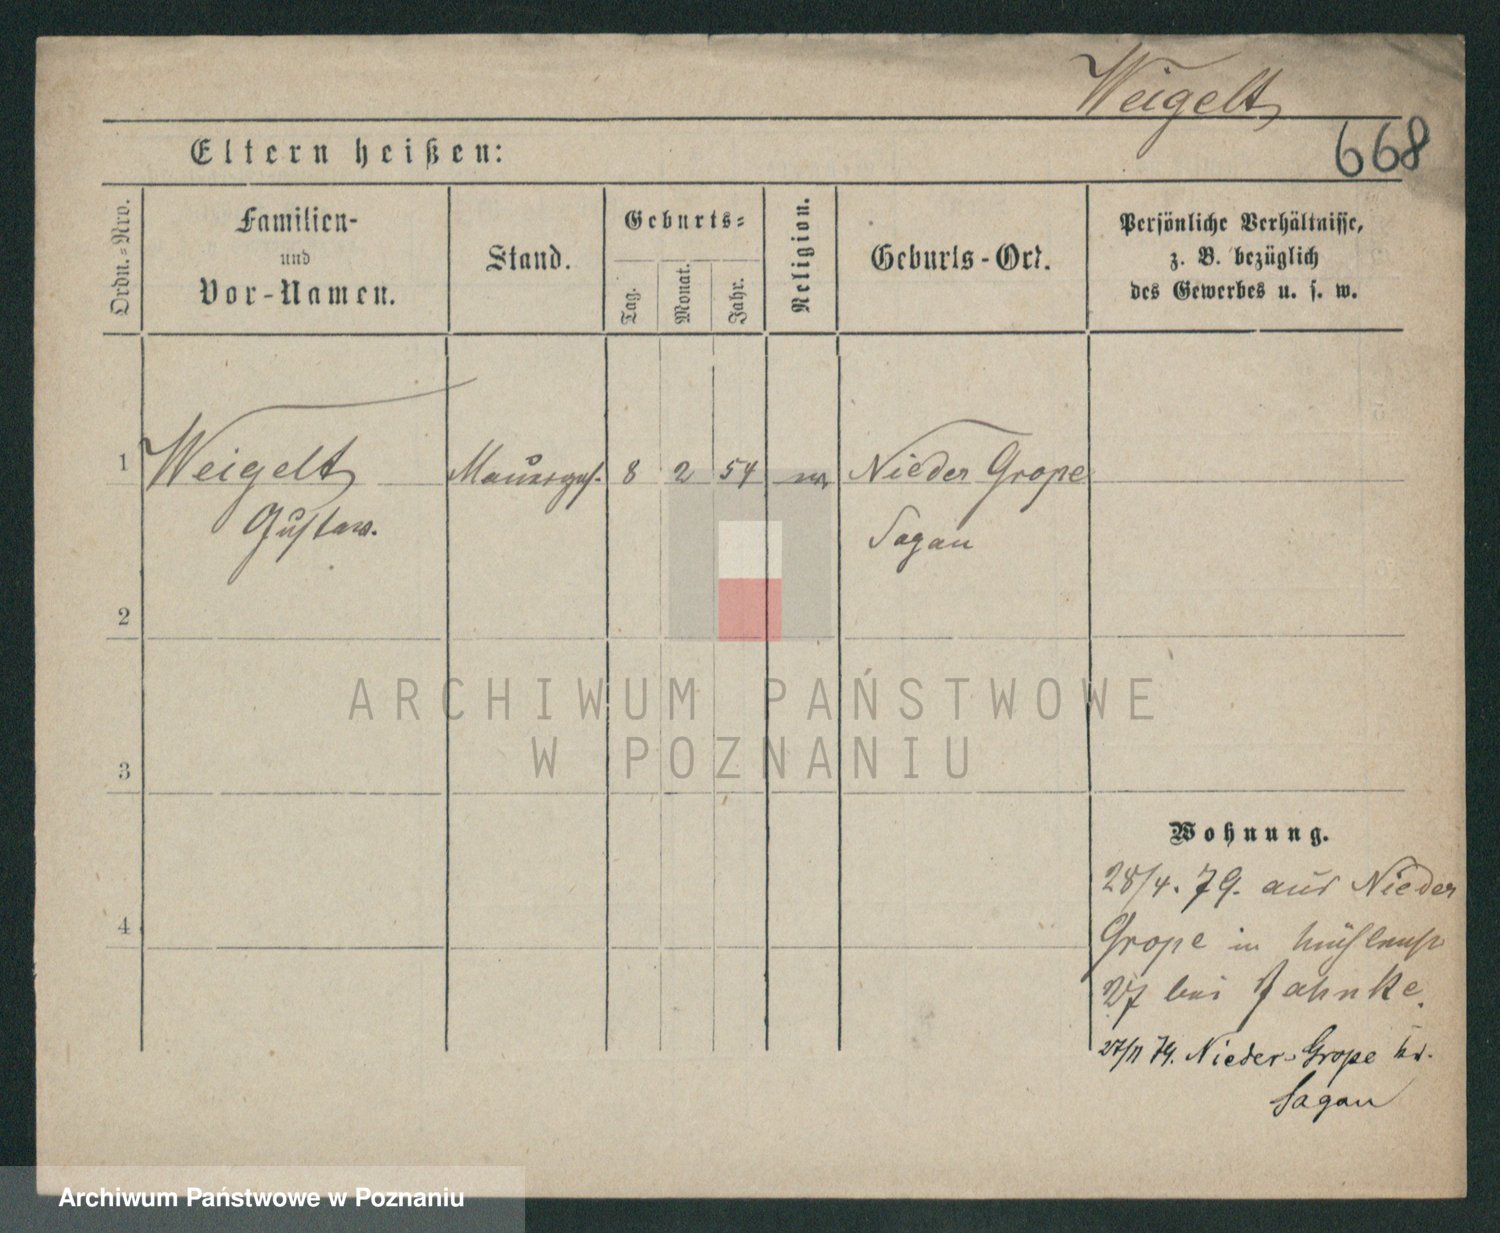 Weigelt
668
Eltern heißen:
Ordn.-Nro.
Familien-
und
Vor-Namen.
Stand.
Geburts-
Tag.
Monat.
Jahr.
Religion.
Geburts-Ort.
Persönliche Verhältnisse,
z. B. bezüglich
des Gewerbes u. s. w.
1 Weigelt Maurerges. 8 2 54 Nieder Grope
Gustav. Sagan
2
3
4
Wohnung.
28/4. 79. aus Nieder
Grope in Mühlenstr
27 bei Jahnke.
27/11 79. Nieder-Grope
Sagan
ARCHIWUM PAŃSTWOWE
W POZNANIU
Archiwum Państwowe w Poznaniu